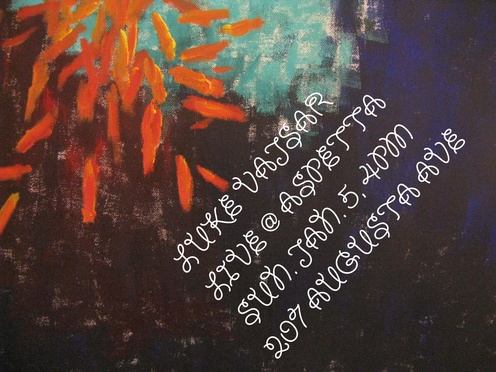 LUKE VAJSAR
LIVE @ ASPETTA
SUN. JAN. 5, 4PM
207 AUGUSTA AVE